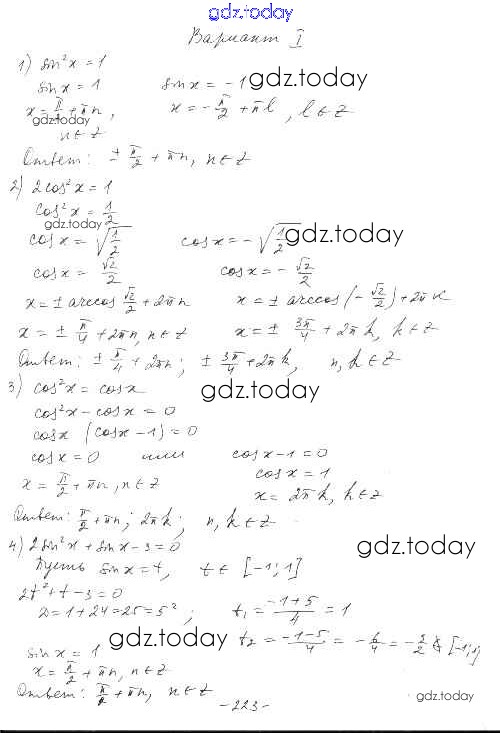 gdz.today
Вариант I
1) sin²x = 1
sin x = 1 sin x = -1 gdz.today
x = π/2 + πn, x = -π/2 + πl, l ∈ Z
gdz.today
n ∈ Z
Ответ: ± π/2 + πn, n ∈ Z
2) 2cos²x = 1
cos²x = 1/2
gdz.today
cos x = √(1/2) cos x = -√(1/2) gdz.today
cos x = √2/2 cos x = -√2/2
x = ± arccos √2/2 + 2πn x = ± arccos(-√2/2) + 2πk
x = ± π/4 + 2πn, n ∈ Z x = ± 3π/4 + 2πk, k ∈ Z
Ответ: ± π/4 + 2πn; ± 3π/4 + 2πk, n, k ∈ Z
3) cos²x = cos x gdz.today
cos²x - cos x = 0
cos x (cos x - 1) = 0
cos x = 0 или cos x - 1 = 0
cos x = 1
x = π/2 + πn, n ∈ Z x = 2πk, k ∈ Z
Ответ: π/2 + πn; 2πk, n, k ∈ Z
4) 2sin²x + sin x - 3 = 0 gdz.today
Пусть sin x = t, t ∈ [-1; 1]
2t² + t - 3 = 0
D = 1 + 24 = 25 = 5²; t₁ = (-1+5)/4 = 1
gdz.today t₂ = (-1-5)/4 = -6/4 = -3/2 ∉ [-1; 1]
sin x = 1
x = π/2 + πn, n ∈ Z
Ответ: π/2 + πn, n ∈ Z
gdz.today
- 223 -